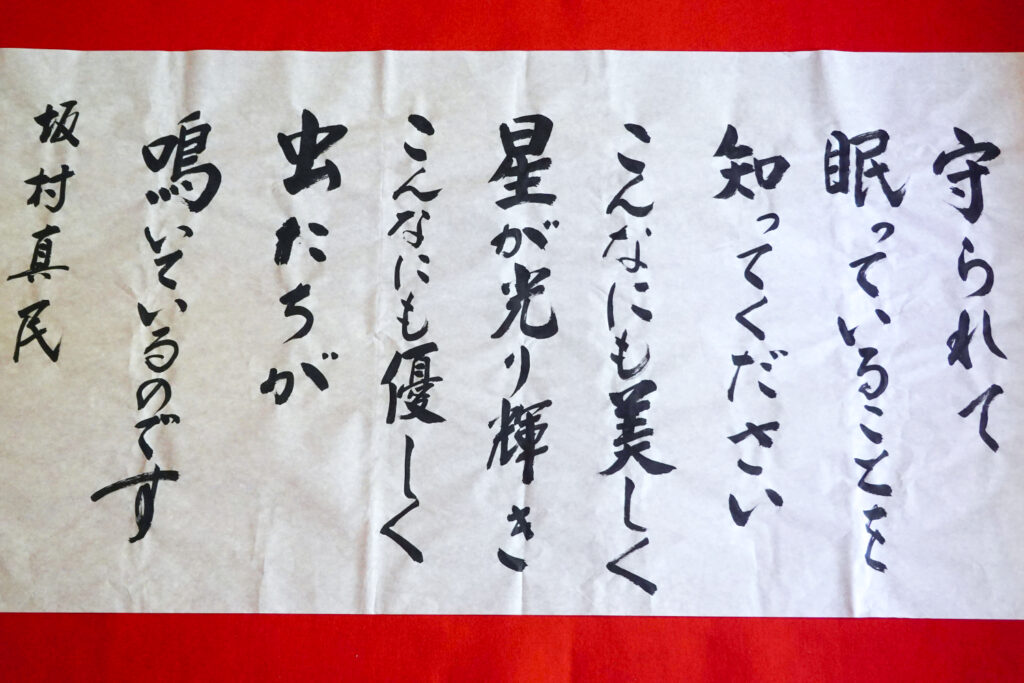 守られて
眠っていることを
知ってください
こんなにも美しく
星が光り輝き
こんなにも優しく
虫たちが
鳴いているのです
坂村真民